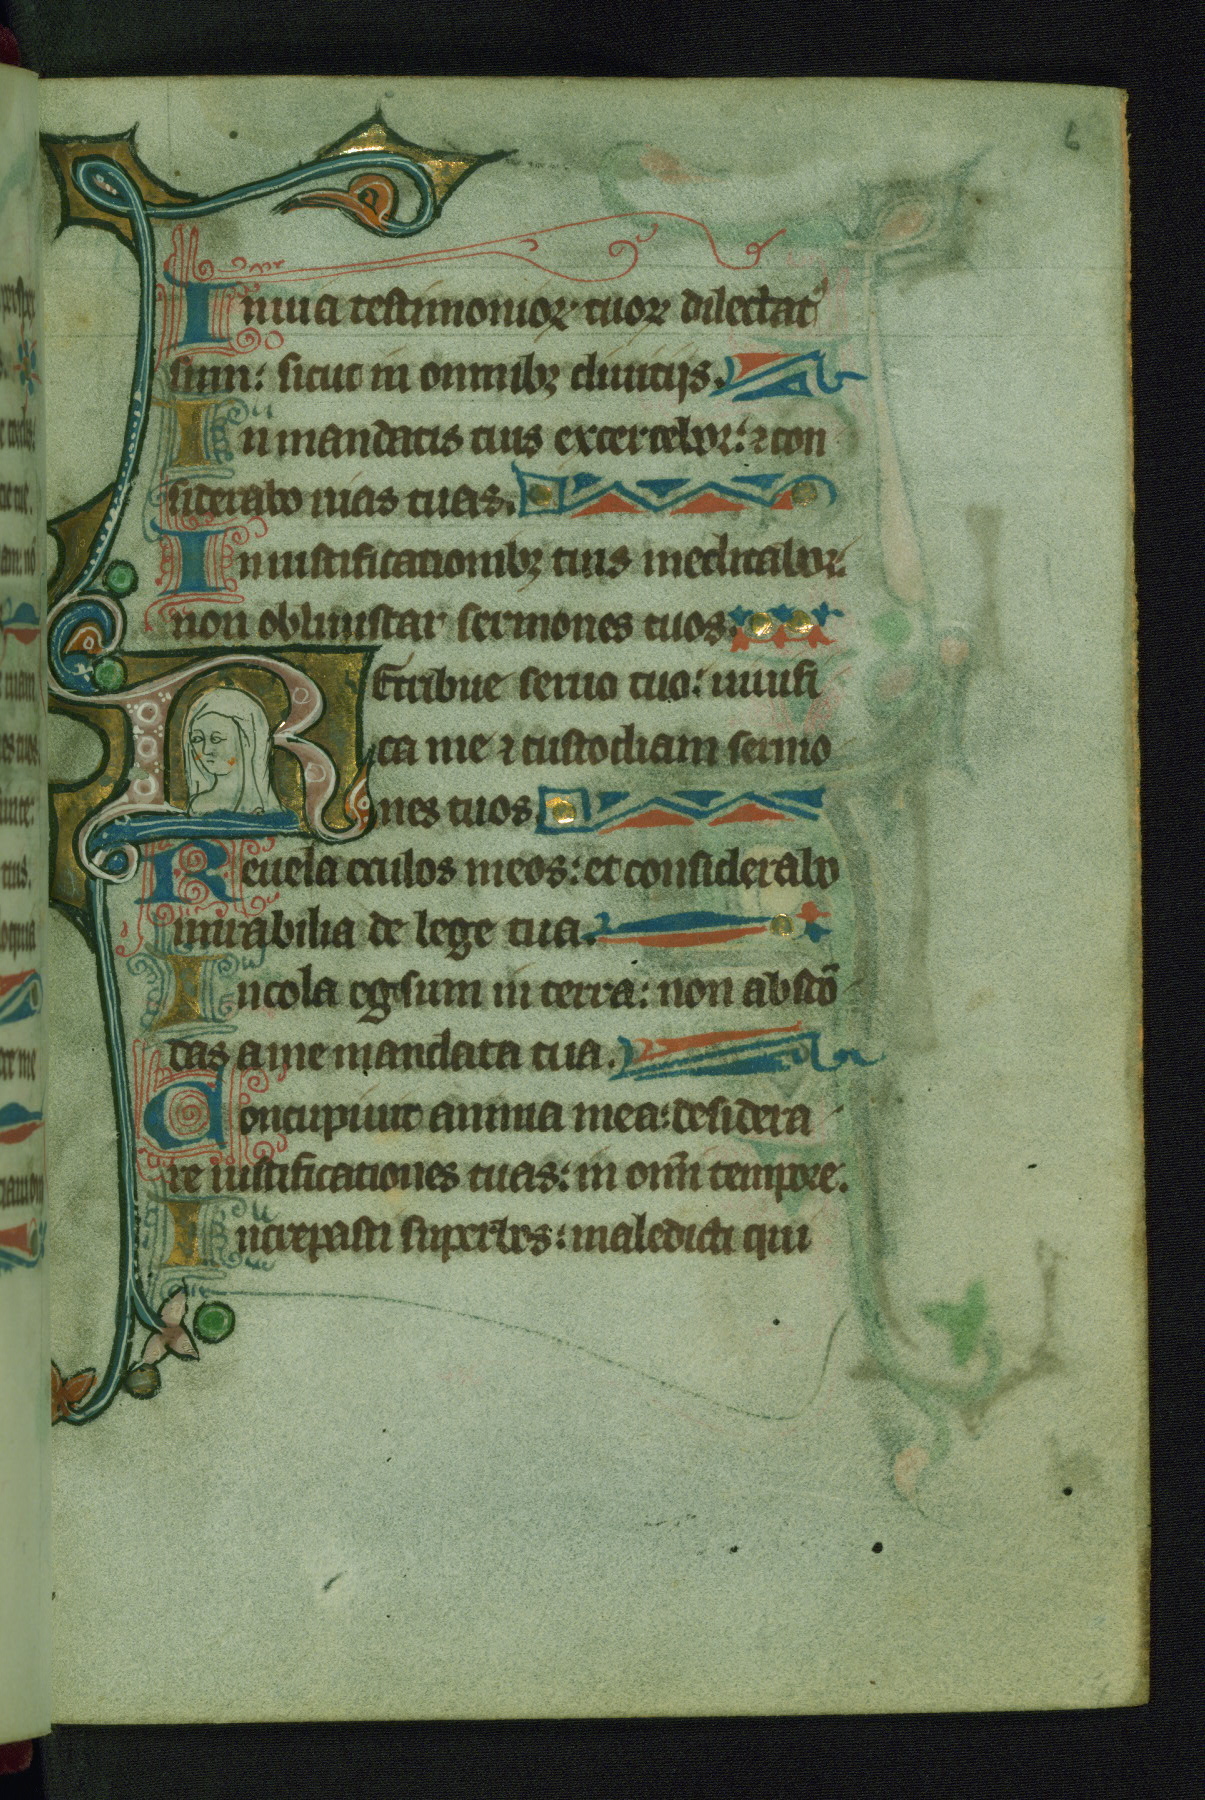 6
In uia testimonioꝝ tuoꝝ dilectatꝰ
sum: sicut in omnibꝫ diuitijs.
In mandatis tuis exercebor: ⁊ con
siderabo uias tuas.
In iustificationibꝫ tuis meditabor:
non obliuiscar sermones tuos.
REtribue seruo tuo: uiuifi
ca me ⁊ custodiam sermo
nes tuos.
Reuela oculos meos: et considerabo
mirabilia de lege tua.
Incola ego sum in terra: non abscō
das a me mandata tua.
Concupiuit anima mea: desidera
re iustificationes tuas: in om̄i tempore.
Increpasti superbos: maledicti qui